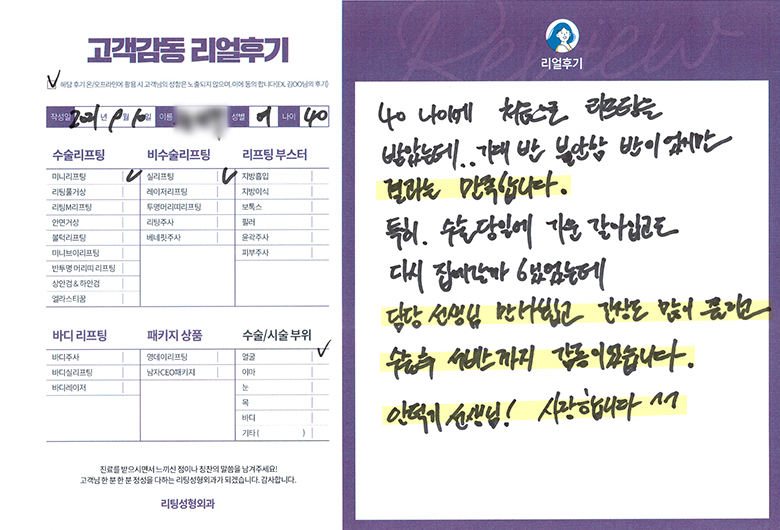 고객감동 리얼후기
해당 후기 온/오프라인에 활용 시 고객님의 성함은 노출되지 않으며, 이에 동의 합니다(EX. 김OO님의 후기)
작성일 2021년 9월 10일 이름 성별 여 나이 40
수술리프팅 비수술리프팅 리프팅 부스터
미니리프팅 실리프팅 지방흡입
리팅풀거상 레이저리프팅 지방이식
리팅M리프팅 투명머리띠리프팅 보톡스
안면거상 리팅주사 필러
볼턱리프팅 베네핏주사 윤곽주사
미니브이리프팅 피부주사
반투명 머리띠 리프팅
상안검 & 하안검
엘라스티꿈
바디 리프팅 패키지 상품 수술/시술 부위
바디주사 영데이리프팅 얼굴
바디실리프팅 남자CEO패키지 이마
바디레이저 눈
목
바디
기타 ( )
진료를 받으시면서 느끼신 점이나 칭찬의 말씀을 남겨주세요!
고객님 한 분 한 분 정성을 다하는 리팅성형외과가 되겠습니다. 감사합니다.
리팅성형외과
Review
리얼후기
40 나이에 처음으로 리프팅을
받았는데.. 기대 반 불안함 반이었지만
결과는 만족합니다.
특히, 수술당일에 가운 갈아입고도
다시 집에갈까 싶었는데
담당 선생님 만나뵙고 긴장도 많이 풀리고
수술후 서비스까지 감동이었습니다.
안덕기 선생님! 사랑합니다 ^^